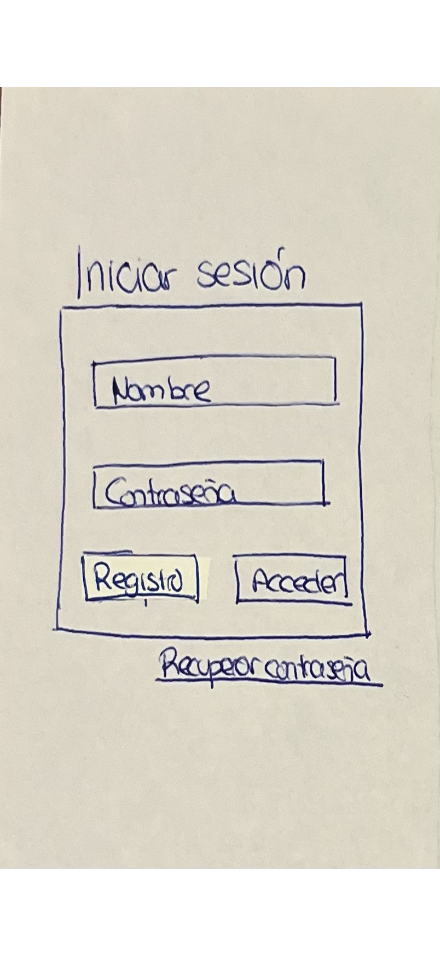 Iniciar sesión
Nombre
Contraseña
Registro Acceder
Recuperar contraseña